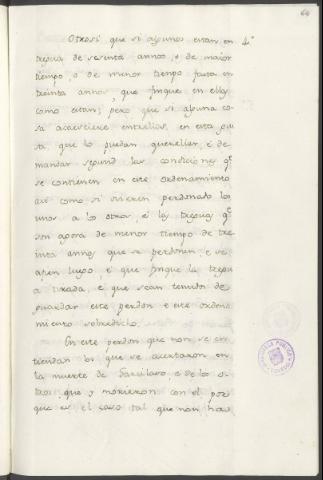 64
Otrosi que si algunos estan en 4º
tregua de sesenta annos, o de maior
tiempo, o de menor tiempo fasta en
treinta annos, que finque en ellos
como estan; pero que si alguna co
sa acaesciere entrellos, en esta
que lo puedan querellar, e de
mandar segund las condiciones qe
se contienen en este ordenamiento
asi como si oviesen perdonado los
unos a los otros, e las treguas qe
son agora de menor tiempo de tre
inta annos que se perdonen, e se
luego, e que finque la tregu
a tirada, e que sean tenudos de
guardar este perdon e este ordena
miento sobredicho.
En este perdon que non se en
tiendan los que se acertaron en
la muerte de Garcilaso, e de los o
tros, que y morieron con el por
que es el caso tal que non